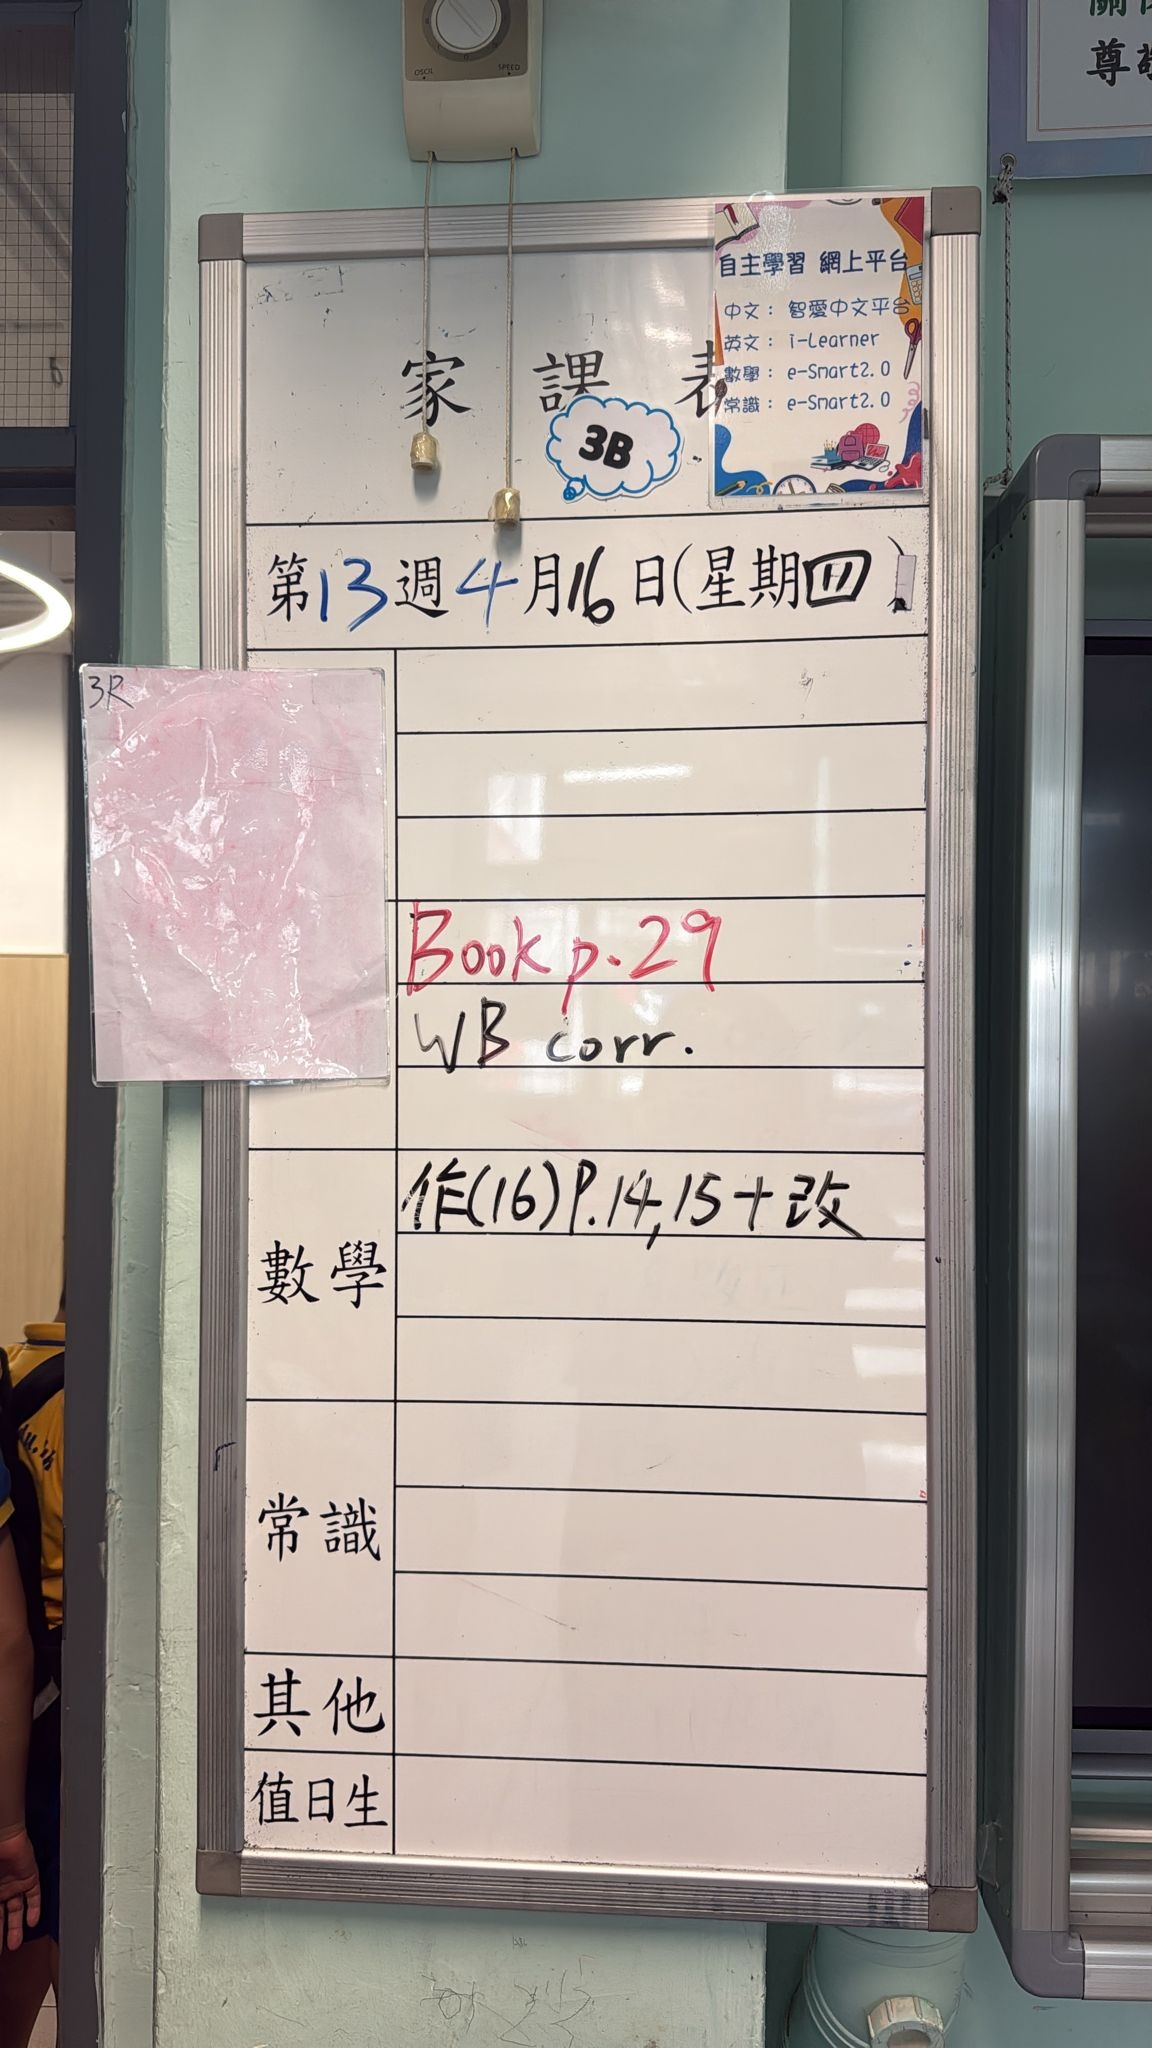 OSCIL SPEED
尊
自主學習 網上平台
中文： 智愛中文平台
英文： i-Learner
數學： e-Smart2.0
常識： e-Smart2.0
家課表
3B
第13週4月16日(星期四)
3R
Book p.29
WB corr.
數學
作(16)P.14,15+改
常識
其他
值日生